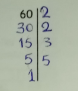 60 2
30 2
15 3
5 5
1